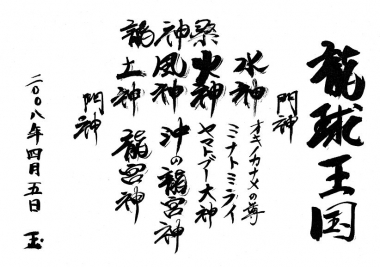 龍球王国
龍神祭
門神
水神 オキノカナメの尊
火神 ミナトミライ
風神 ヤマトブー大神
土神 沖の龍宮神
龍宮神
門神
二〇〇八年四月五日 玉